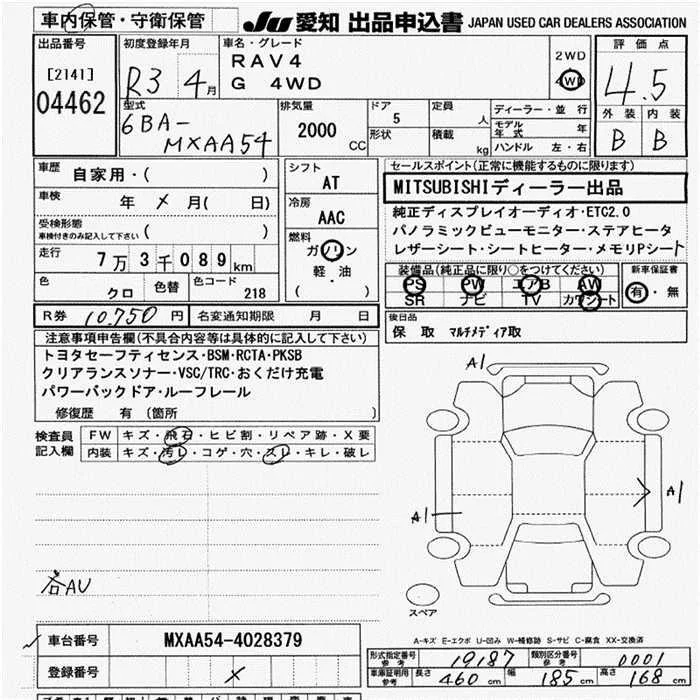 車内保管・守衛保管
JU 愛知 出品申込書 JAPAN USED CAR DEALERS ASSOCIATION
出品番号
[2141]
04462
初度登録年月
R3 4月
車名・グレード
RAV4
G 4WD
2WD
4WD
評価点
4.5
外装 内装
B B
型式
6BA-
MXAA54
排気量
2000 CC
ドア
5
形状
定員
人
積載
kg
ディーラー・並行
モデル年式 年
ハンドル 左・右
車歴
自家用・( )
車検
年 メ 月( 日)
受検形態
車検付きのみ記入して下さい ( )
走行
7万3千089km
色
クロ
色替
色コード
218
シフト
AT
冷房
AAC
燃料
ガソリン
軽・油
( )
セールスポイント(正常に機能するものに限ります)
MITSUBISHIディーラー出品
純正ディスプレイオーディオ・ETC2.0
パノラミックビューモニター・ステアヒータ
レザーシート・シートヒーター・メモリPシート
装備品(純正品に限り○をつけてください)
PS PW エアB AW
SR ナビ TV カワシート
新車保証書
有・無
R券 10,750 円
名変通知期限 月 日
後日品
保 取 マルチメディア取
注意事項申告欄(不具合内容等は具体的に記入して下さい)
トヨタセーフティセンス・BSM・RCTA・PKSB
クリアランスソナー・VSC/TRC・おくだけ充電
パワーバックドア・ルーフレール
修復歴 有 (箇所 )
検査員
記入欄
FW キズ・飛石・ヒビ割・リペア跡・X要
内装 キズ・汚レ・コゲ・穴・スレ・キレ・破レ
A1
A1
A1
各AU
スペア
A-キズ E-エクボ U-凹み W-補修跡 S-サビ C-腐食 XX-交換済
車台番号 MXAA54-4028379
登録番号 メ
形式指定番号
参考
19187
類別区分番号
参考
0001
車庫証明用
参考
長さ 460 cm 幅 185 cm 高さ 168 cm